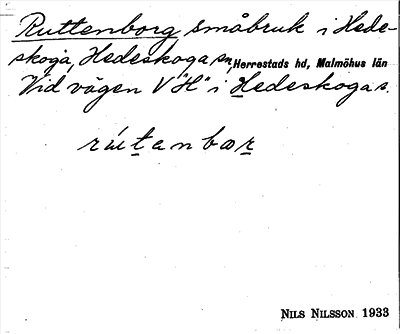 Ruttenborg småbruk i Hede-
skoga, Hedeskoga sn, Herrestads hd, Malmöhus län
Vid vägen V "H" i Hedeskoga s.
rútanbær
NILS NILSSON 1933